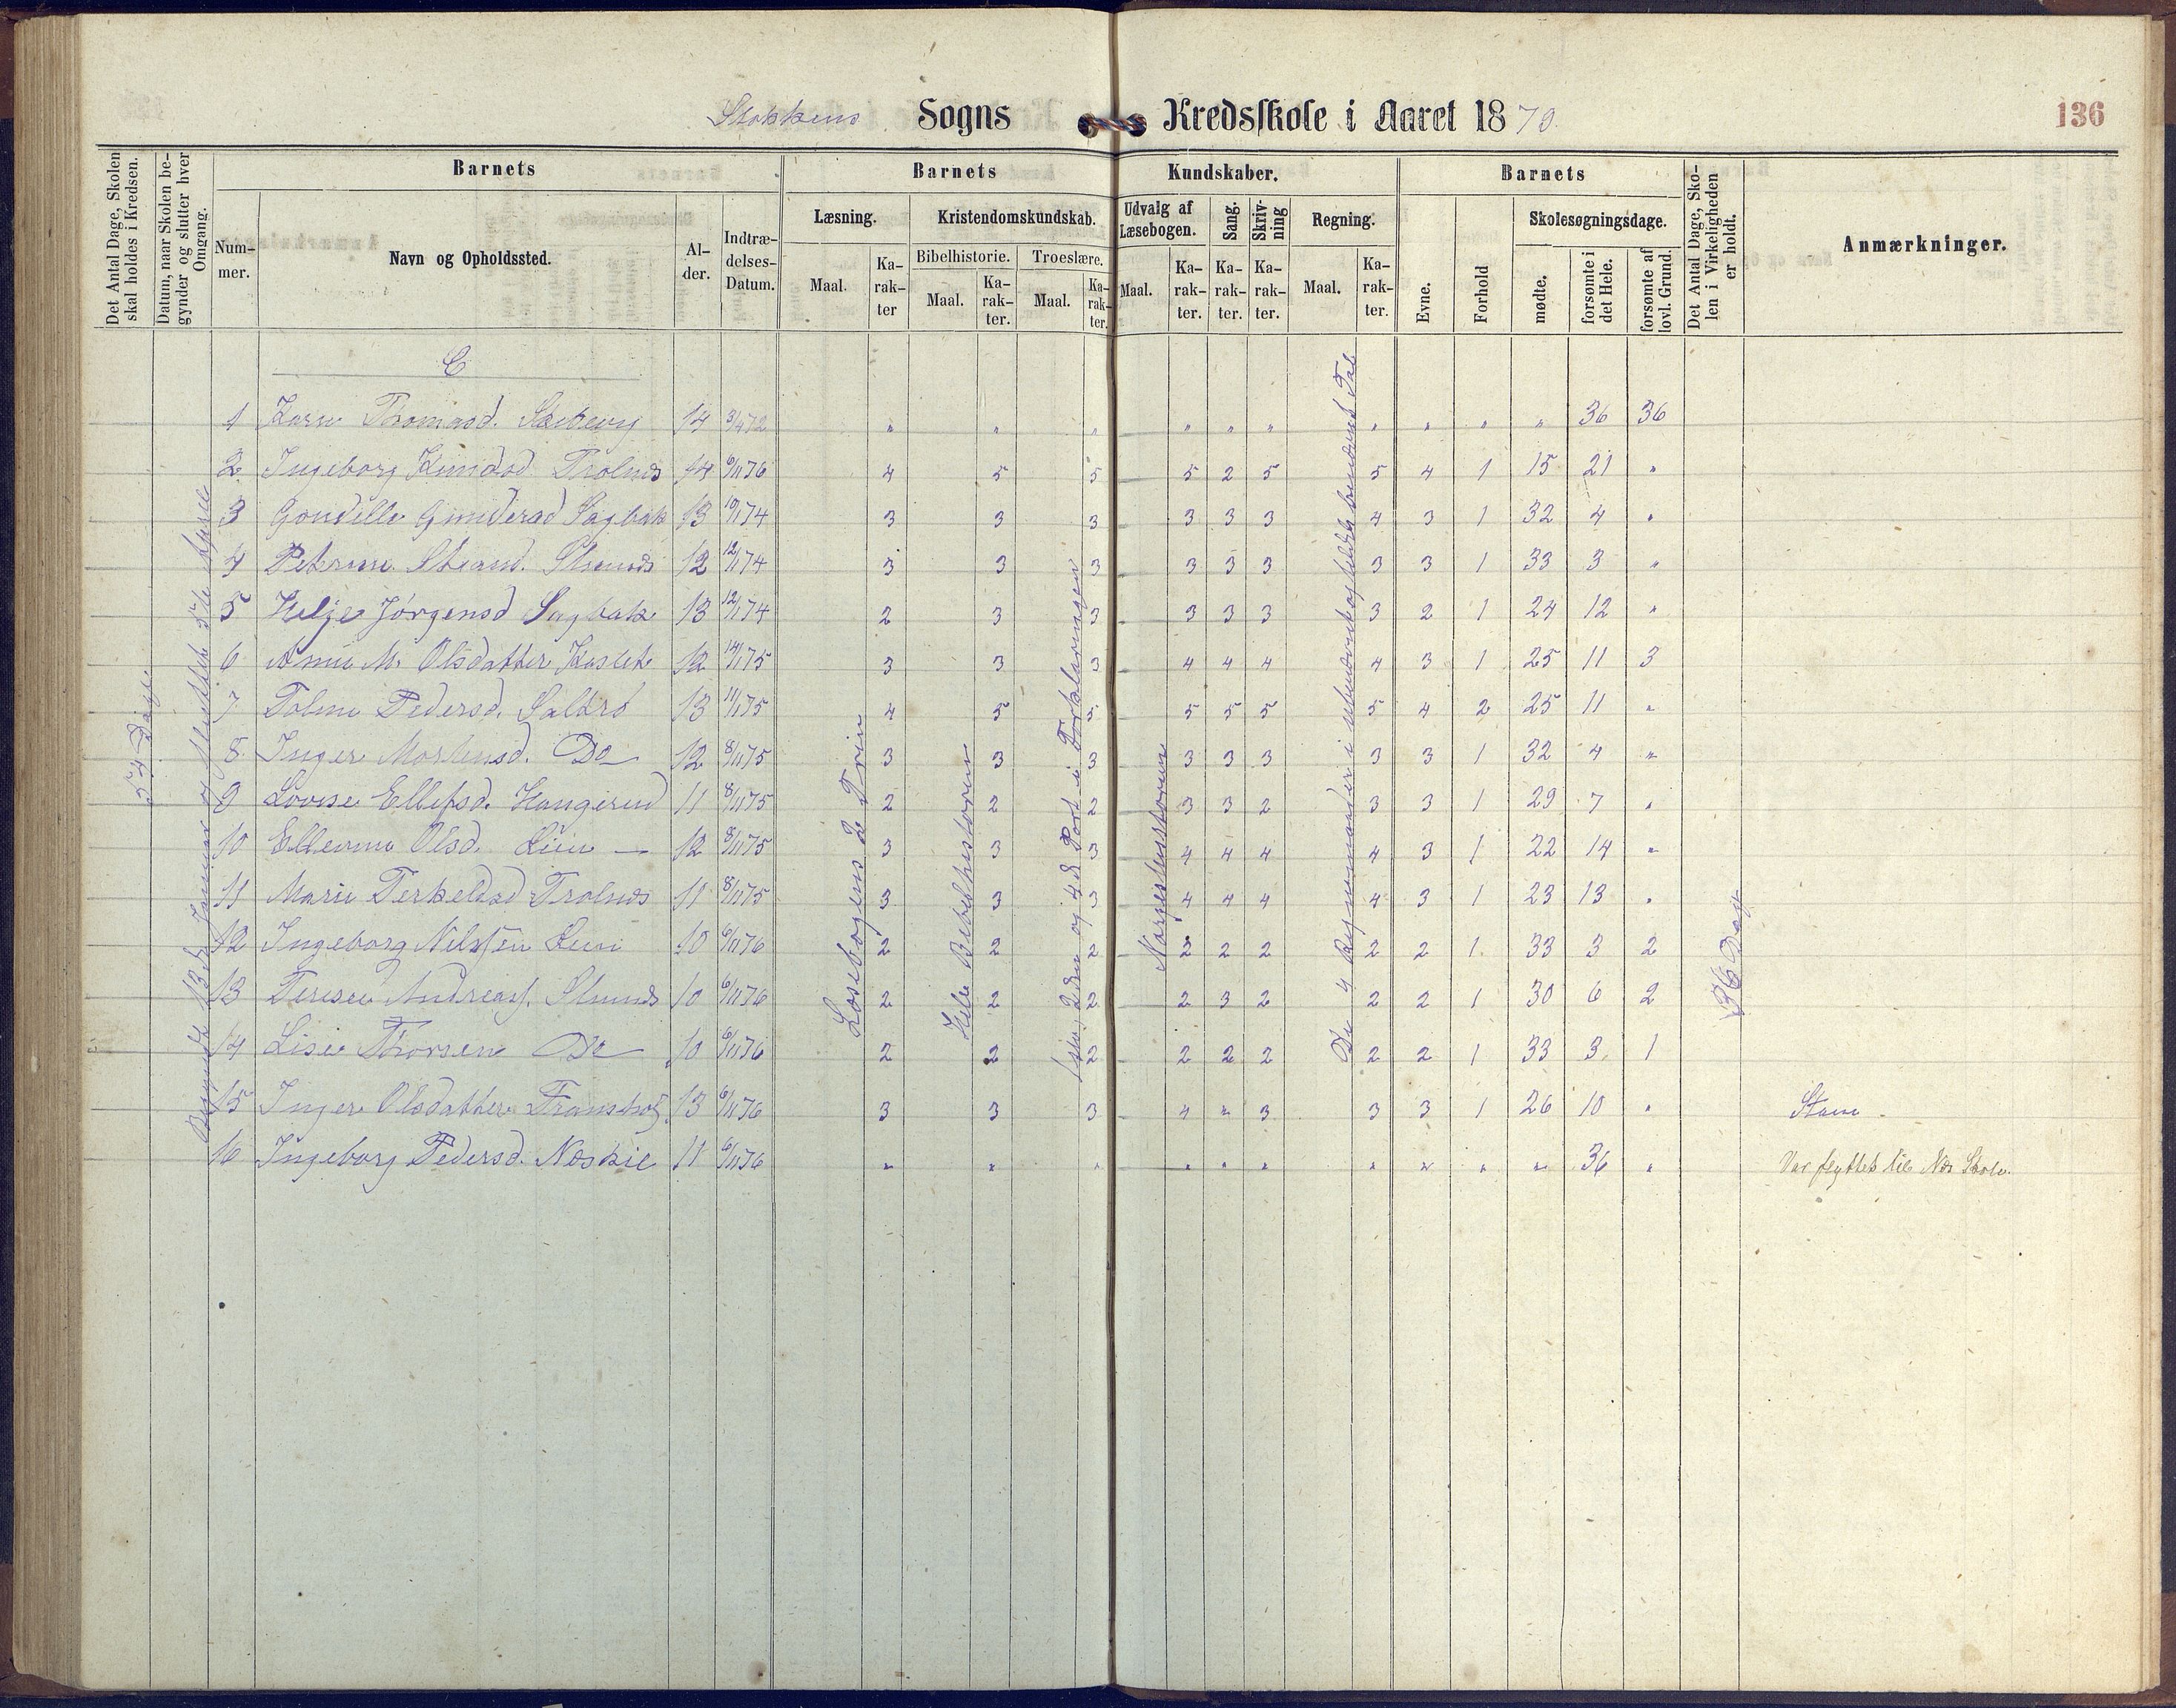 Stokkens Sogns Kredsskole i Aaret 1870.
136
Det Antal Dage, Skolen skal holdes i Kredsen.
Datum, naar Skolen begynder og slutter hver Omgang.
Barnets
Barnets Kundskaber.
Barnets
Det Antal Dage, Skolen i Virkeligheden er holdt.
Anmærkninger.
Nummer.
Navn og Opholdssted.
Alder.
Indtrædelses-Datum.
Læsning.
Kristendomskundskab.
Udvalg af Læsebogen.
Sang.
Skrivning
Regning.
Evne.
Forhold
Skolesøgningsdage.
Bibelhistorie.
Troeslære.
Maal.
Karakter
Maal.
Karakter.
Maal.
Karakter.
Maal.
Karakter.
Karakter.
Karakter.
Maal.
Karakter.
mødte.
forsømte i det Hele.
forsømte af lovl. Grund.
54 Dage.
Begyndte 13de Januar og sluttet 5te April
Læsebogens 2 Trin
Hele Bibelhistorien
1ste, 2den og 4de Part i Forklaringen
Norgeshistorien
De 4 Regnemaader i ubenævnte og heldt benævnte Tal
36 Dage
C
1 Karen Thomasd. 14 3/4 72 " " " " " " " " " " 36 36
2 Ingeborg Knudsd Trolnes 14 6/11 76 4 5 5 5 2 5 5 4 1 15 21 "
3 Gondille Gundersd Sagbak 13 10/1 74 3 3 3 3 3 3 4 3 1 32 4 "
4 Peterine 12 12/1 74 3 3 3 3 3 3 3 3 1 33 3 "
5 Helje Jørgensd Sagbak 13 12/1 74 2 3 3 3 3 3 3 2 1 24 12 "
6 Anne M. Olsdatter 12 14/1 75 3 3 3 4 4 4 4 3 1 25 11 3
7 Toline Pedersd. Saltrø 13 11/1 75 4 5 5 5 5 5 5 4 2 25 11 "
8 Inger Mortensd. Do 12 8/11 75 3 3 3 3 3 3 3 3 1 32 4 "
9 Lovise Ellefsd. Haugerud 11 8/11 75 2 2 2 3 3 2 3 3 1 29 7 "
10 Ellevine Olsd. Lien 12 8/11 75 3 3 3 4 4 4 4 3 1 22 14 "
11 Marie Terkelsd Trolnes 11 8/11 75 3 3 3 4 4 4 4 3 1 23 13 "
12 Ingeborg Nilssen Lien 10 6/11 76 2 2 2 2 2 2 2 2 1 33 3 2
13 Terese Andreass. 10 6/11 76 2 2 2 2 3 2 2 2 1 30 6 2
14 Lise Thorsen Do 10 6/11 76 2 2 2 2 2 2 2 2 1 33 3 1
15 Inger Olsdatter 13 6/11 76 3 3 3 4 " 3 3 3 1 26 10 "
16 Ingeborg Pedersd. Neskil 11 6/11 76 " " " " " " " " " " 36 " Var flyttet til Nes Skole.